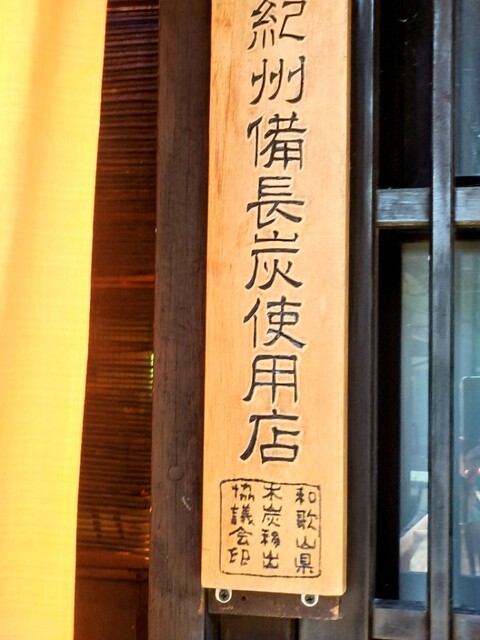 紀州備長炭使用店
和歌山県
木炭移出
協議会印